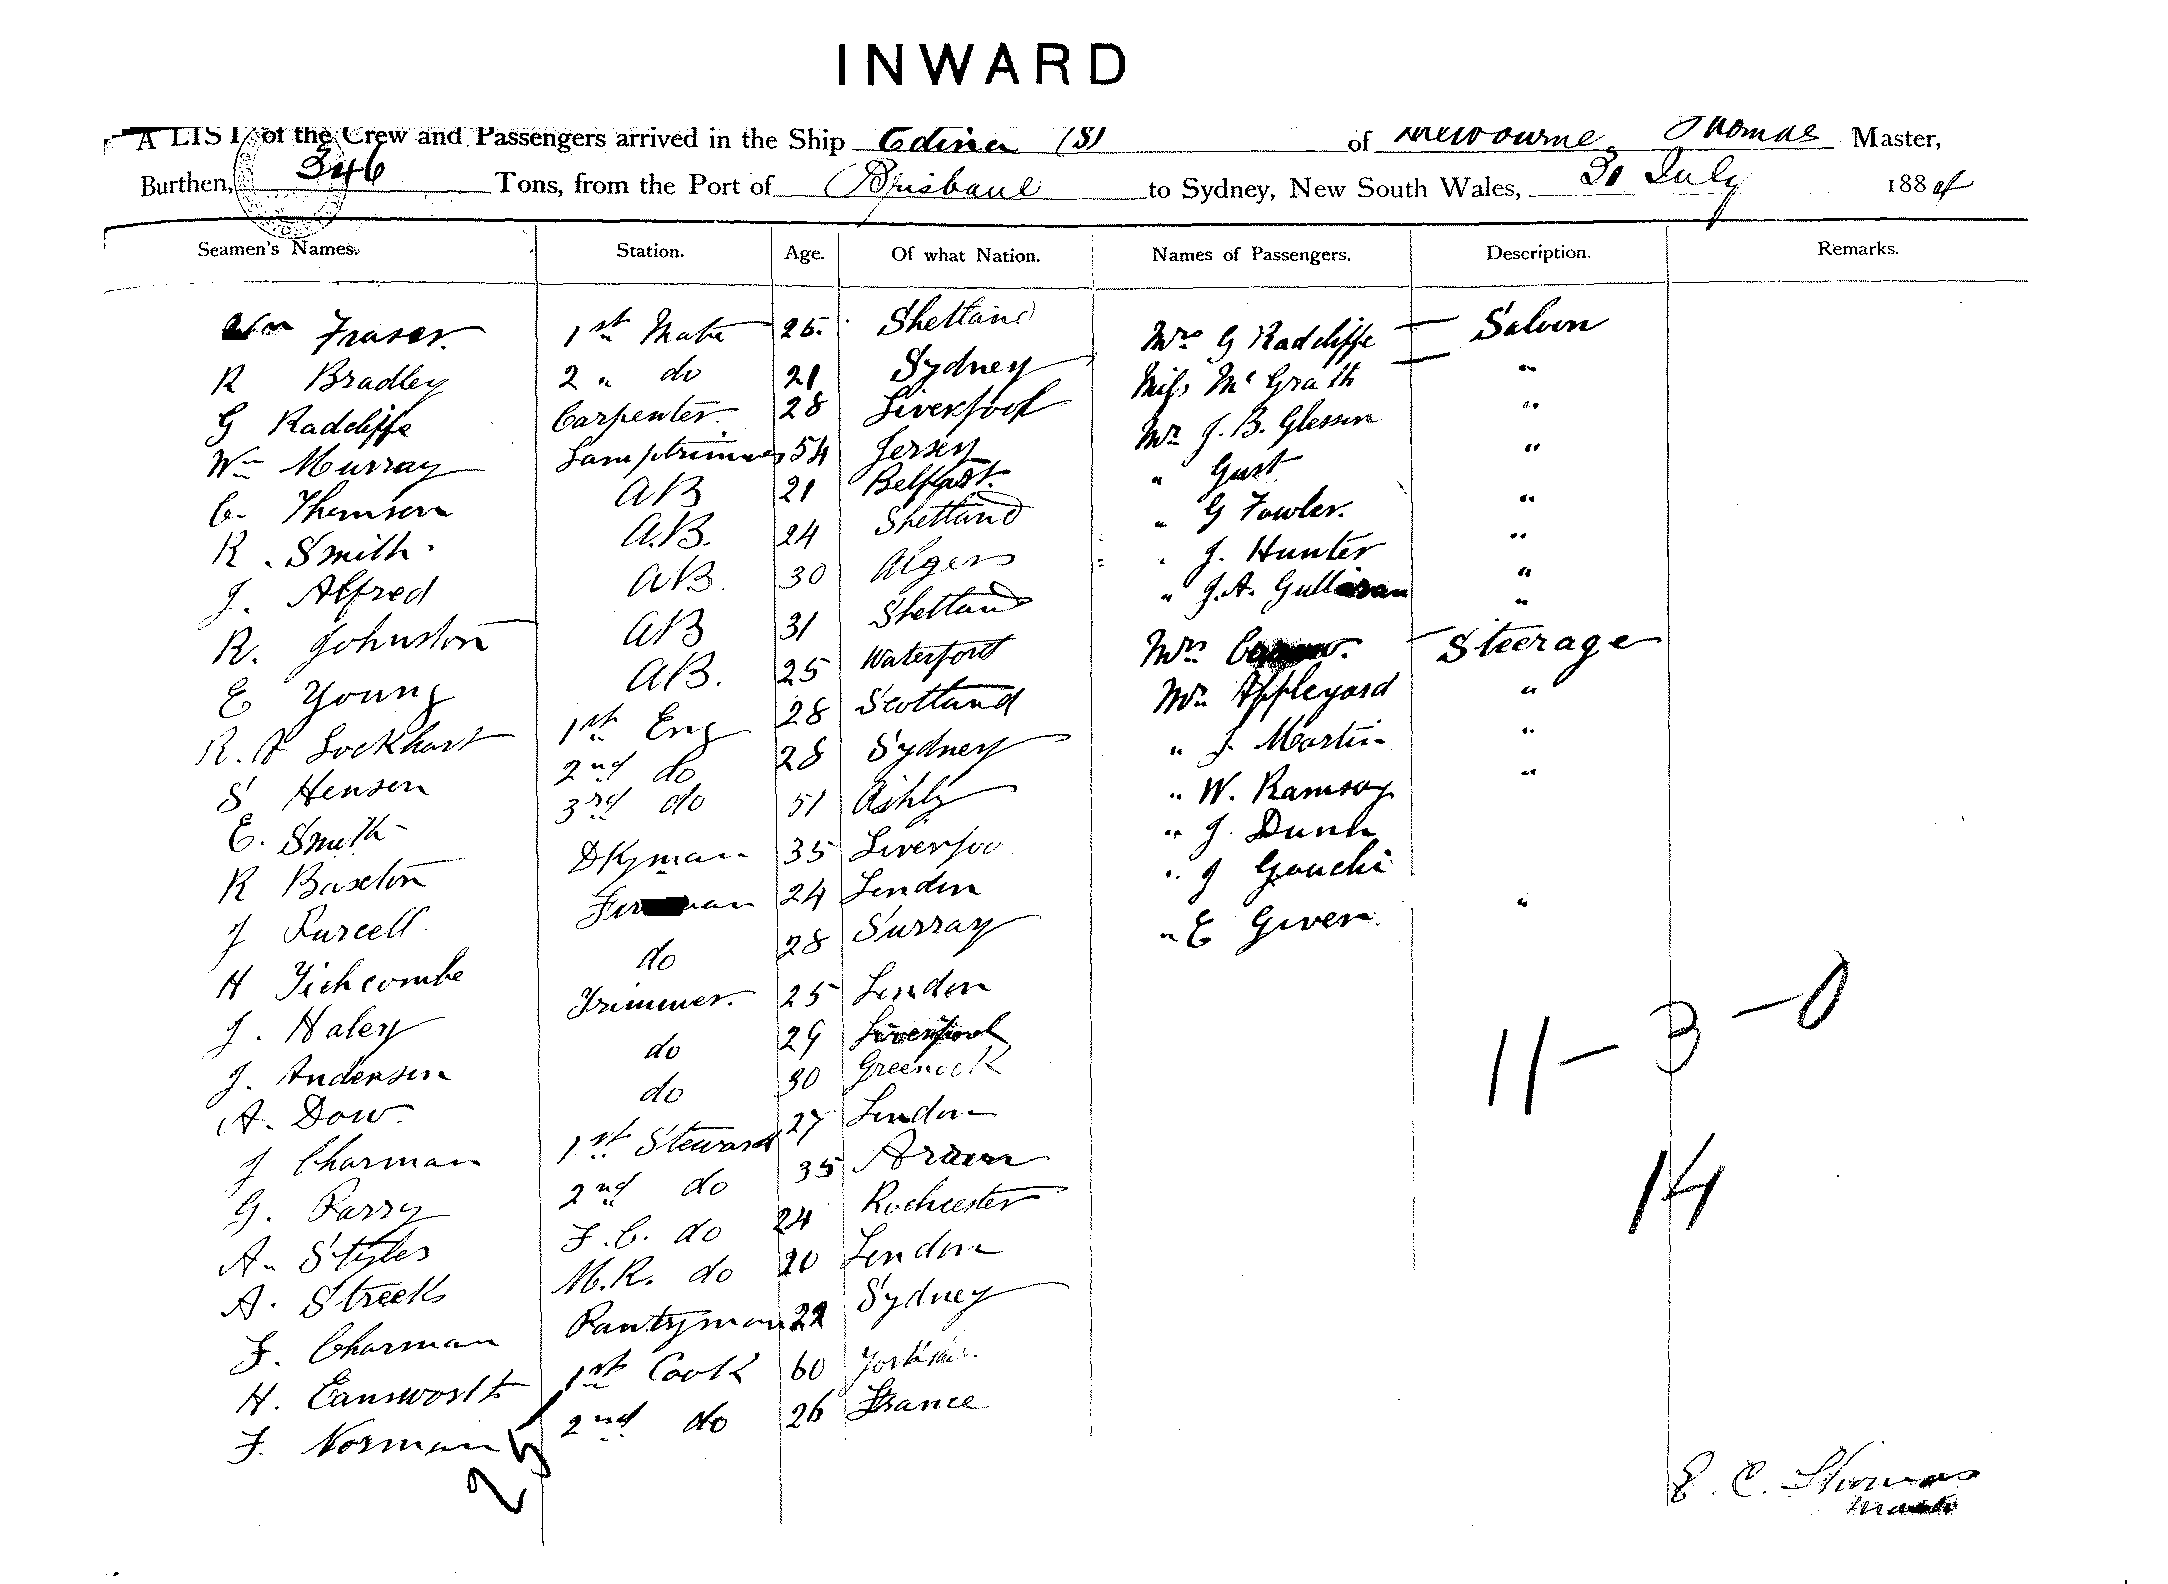 INWARD
A LIST of the Crew and Passengers arrived in the Ship Edina (S) of Melbourne Thomas Master,
Burthen, 346 Tons, from the Port of Brisbane to Sydney, New South Wales, 30 July 188
Seamen's Names. Station. Age. Of what Nation. Names of Passengers. Description. Remarks.
Wm Fraser 1st Mate 25 Shetland Mrs G Radcliffe Saloon
R Bradley 2 " do 21 Sydney Miss McGrath "
G Radcliffe Carpenter 28 Liverpool Mr J. B. Glessen "
Wm Murray Lamptrimmer 54 Jersey " Gust "
C. Thomson AB 21 Belfast " G Fowler. "
R. Smith A.B. 24 Shetland " J. Hunter "
J. Alfred AB 30 Algers " J.A. "
R. Johnston AB 31 Shetland "
E Young AB. 25 Waterford Mrs Steerage
R. Lockhart 1st Eng 28 Scotland Mr Appleyard "
S Henson 2nd do 28 Sydney " J. Martin "
E. Smith 3rd do 51 Ashby " W. Ramsay "
R Baselon Dkyman 35 Liverpoo " J. Dunn
J Purcell Fireman 24 London " J Gouchi
H Tichcombe do 28 Surray " E Given "
J. Haley Trimmer. 25 London
J. Anderson do 29 Liverpool
A. Dow do 30 Greenock
J Charman 1st Steward 27 London
G. Parry 2nd do 35
A. Styles F.C. do 24 Rochester
A. Streek M.R. do 20 London
F. Charman Pantryman 22 Sydney
H. Eansworth 1st Cook 60
F. Norman 2nd do 26 France
25
11-3-0
14
E. C. Thomas
Master